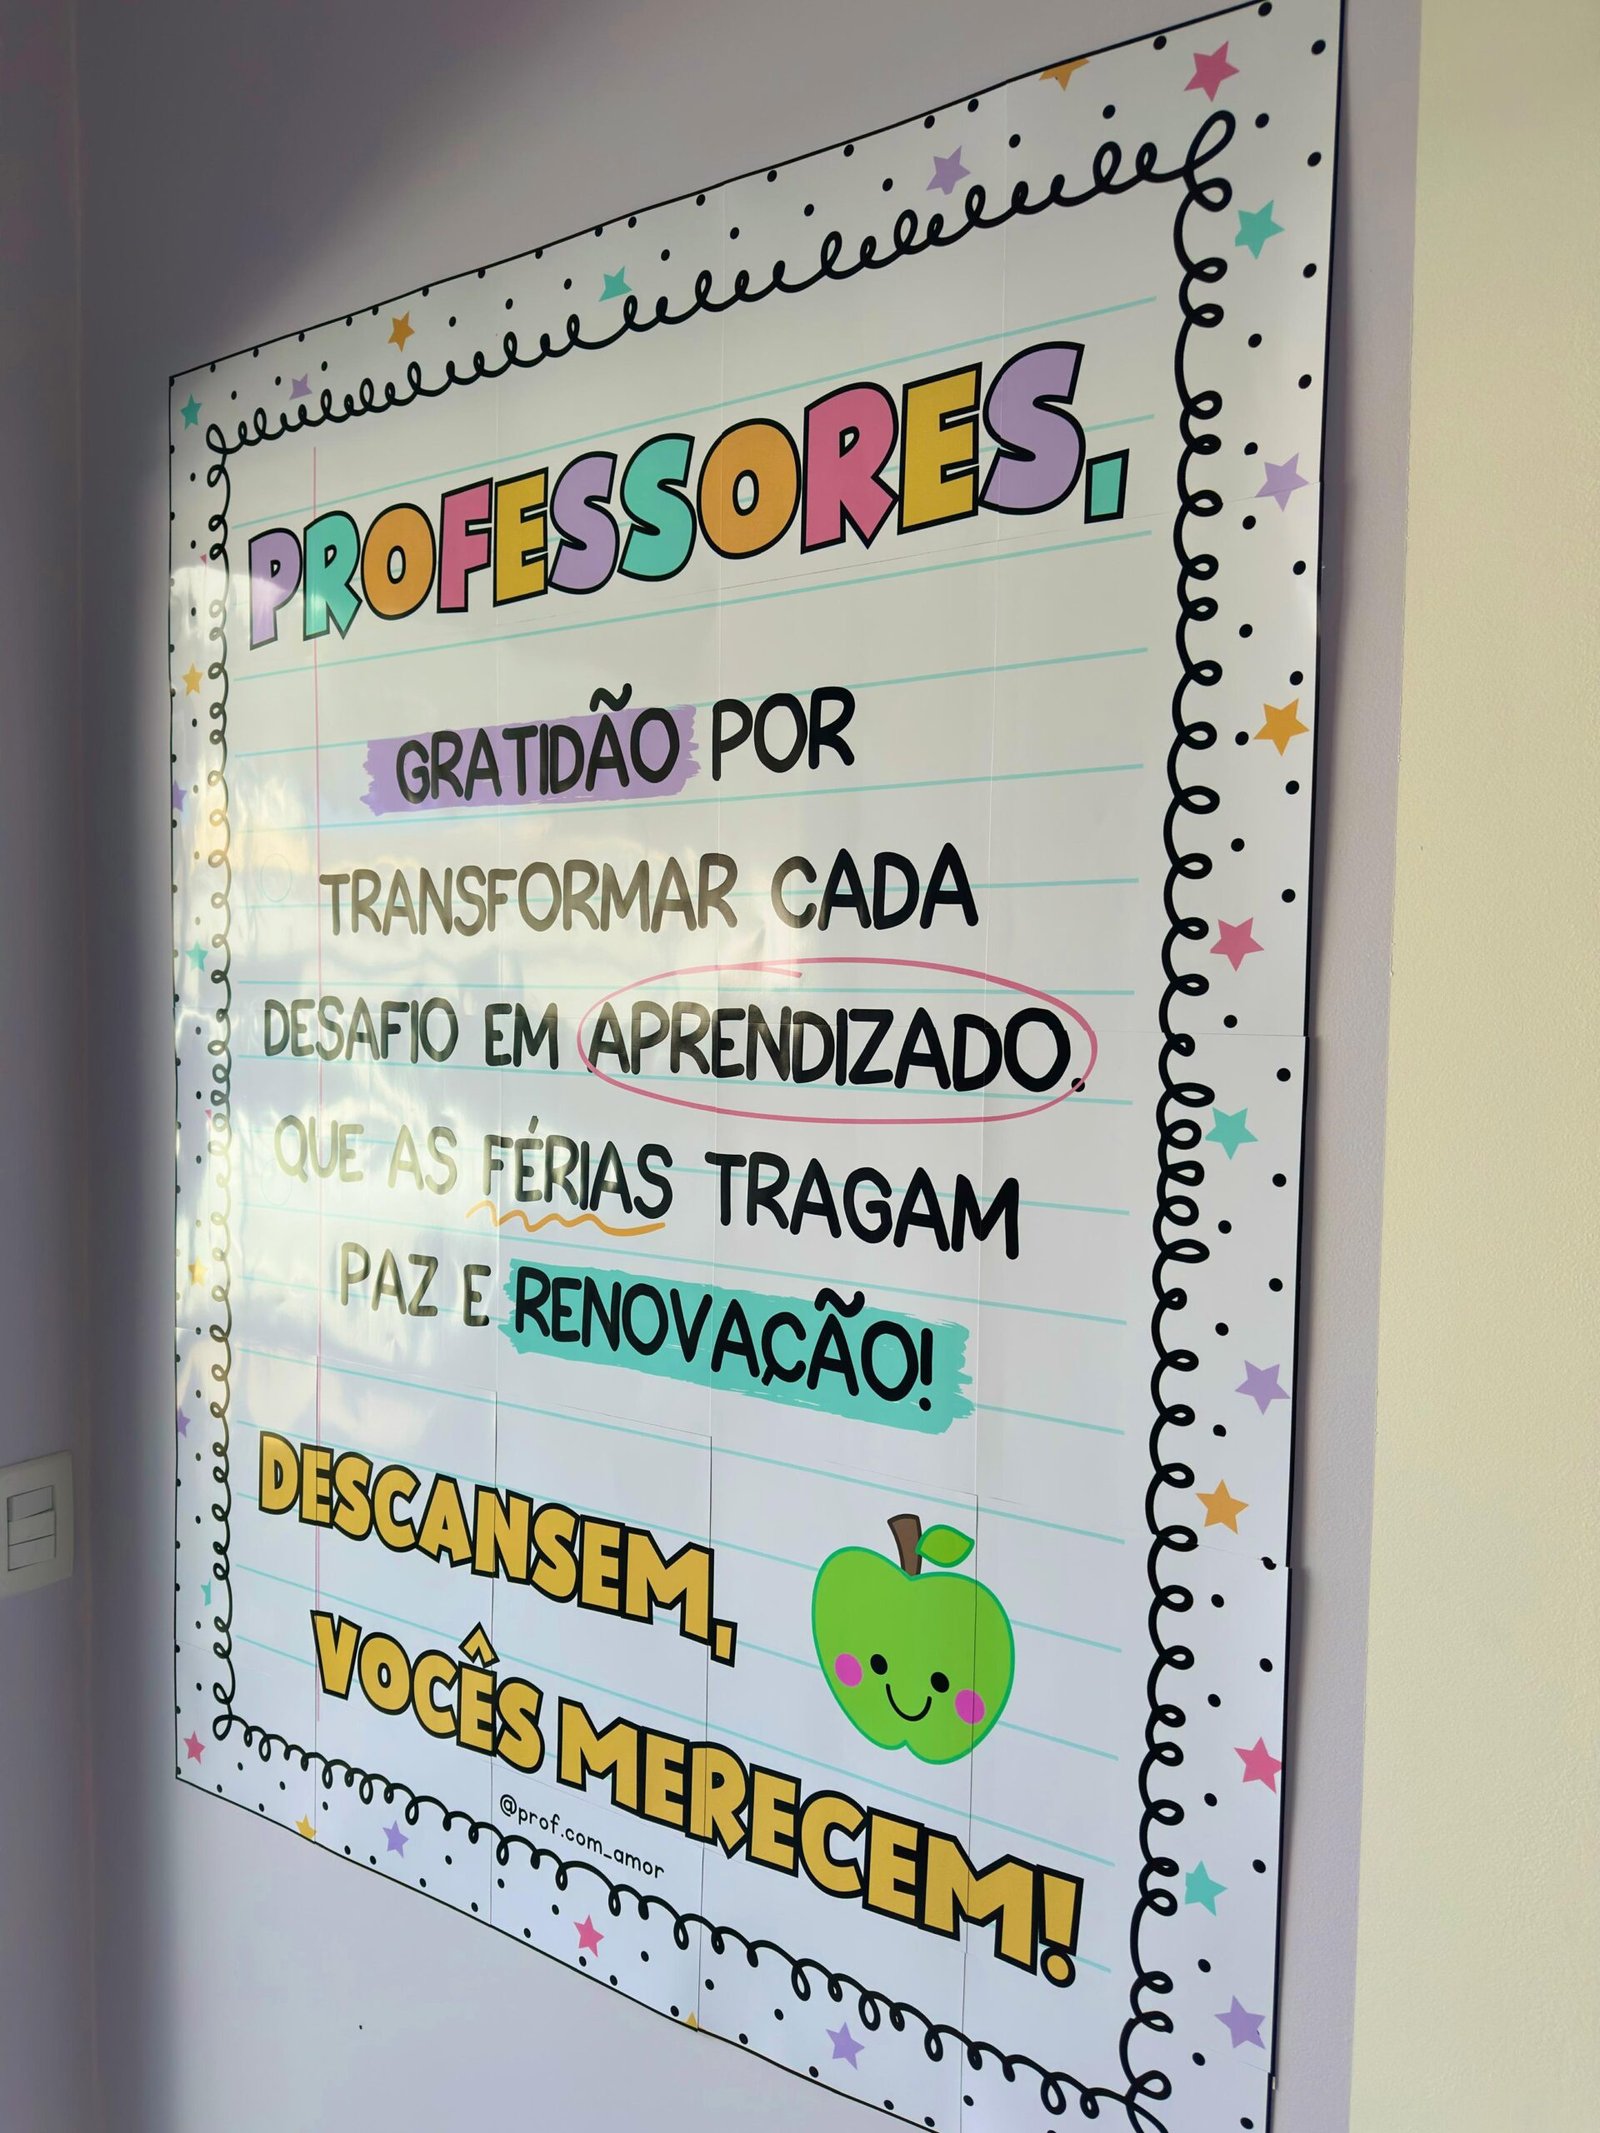 PROFESSORES,
GRATIDÃO POR
TRANSFORMAR CADA
DESAFIO EM APRENDIZADO.
QUE AS FÉRIAS TRAGAM
PAZ E RENOVAÇÃO!
DESCANSEM,
VOCÊS MERECEM!
@prof.com_amor